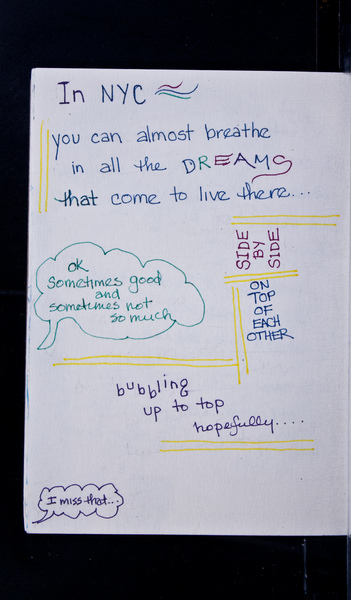 In NYC
you can almost breathe
in all the DREAMS
that come to live there...
SIDE
BY
SIDE
ON
TOP
OF
EACH
OTHER
ok
sometimes good
and
sometimes not
so much
bubbling
up to top
hopefully....
I miss that...